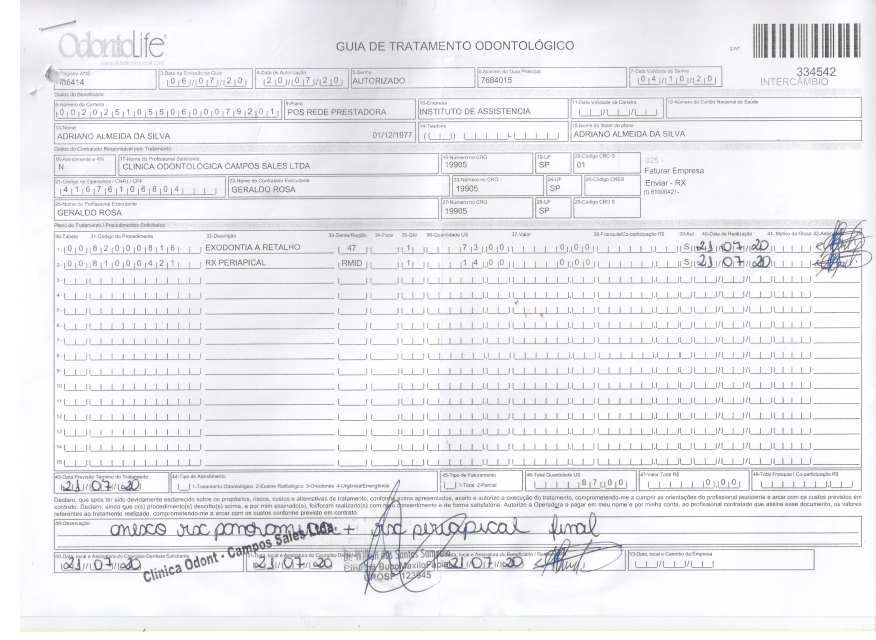 OdontoLife
GUIA DE TRATAMENTO ODONTOLÓGICO
334542
INTERCÂMBIO
3-Data de Emissão da Guia
06/07/20
4-Data de Autorização
20/07/20
5-Senha
AUTORIZADO
6-Número da Guia Principal
7684015
7-Data Validade da Senha
04/10/20
Dados do Beneficiário
8-Número da Carteira
00202510550600079201
9-Plano
POS REDE PRESTADORA
10-Empresa
INSTITUTO DE ASSISTENCIA
11-Data Validade da Carteira
12-Número do Cartão Nacional de Saúde
13-Nome
ADRIANO ALMEIDA DA SILVA 01/12/1977
14-Telefone
15-Nome do titular do plano
ADRIANO ALMEIDA DA SILVA
Dados do Contratado Responsável pelo Tratamento
16-Atendimento a RN
N
17-Nome do Profissional Solicitante
CLINICA ODONTOLOGICA CAMPOS SALES LTDA
18-Número no CRO
19905
19-UF
SP
20-Código CBO S
01
025 -
Faturar Empresa
Enviar - RX
21-Código na Operadora / CNPJ / CPF
41676106804
22-Nome do Contratado Executante
GERALDO ROSA
23-Número no CRO
19905
24-UF
SP
25-Código CNES
26-Nome do Profissional Executante
GERALDO ROSA
27-Número no CRO
19905
28-UF
SP
29-Código CBO S
Plano de Tratamento / Procedimentos Solicitados
30-Tabela 31-Código do Procedimento 32-Descrição 33-Dente/Região 34-Face 35-Qtd 36-Quantidade US 37-Valor 38-Franquia/Co-participação R$ 39-Aut 40-Data de Realização 41- Motivo da Glosa
1- 00 82000816 EXODONTIA A RETALHO 47 1 73,00 0,00 S 21/07/20
2- 00 81000421 RX PERIAPICAL RMID 1 14,00 0,00 S 21/07/20
3-
4-
5-
6-
7-
8-
9-
10-
11-
12-
13-
14-
15-
43-Data Previsão Término do Tratamento
21/07/20
44-Tipo de Atendimento
1-Tratamento Odontológico 2-Exame Radiológico 3-Ortodontia 4-Urgência/Emergência
45-Tipo de Faturamento
1-Total 2-Parcial
46-Total Quantidade US
87,00
47-Valor Total R$
0,00
48-Total Franquia / Co-participação R$
Declaro, que após ter sido devidamente esclarecido sobre os propósitos, riscos, custos e alternativas de tratamento, conforme acima apresentados, aceito e autorizo a execução do tratamento, comprometendo-me a cumprir as orientações do profissional assistente e arcar com os custos previstos em
contrato. Declaro, ainda que o(s) procedimento(s) descrito(s) acima, e por mim assinado(s), foi/foram realizado(s) com meu consentimento e de forma satisfatória. Autorizo a Operadora a pagar em meu nome e por minha conta, ao profissional contratado que assina esse documento, os valores
referentes ao tratamento realizado, comprometendo-me a arcar com os custos conforme previsto em contrato.
49-Observação
anexo rx panoramica + rx periapical final
Clínica Odont - Campos Sales Ltda.
50-Data, local e Assinatura do Cirurgião-Dentista Solicitante
21/07/20
21/07/20
CROSP 123945
21/07/20
53-Data, local e Carimbo da Empresa